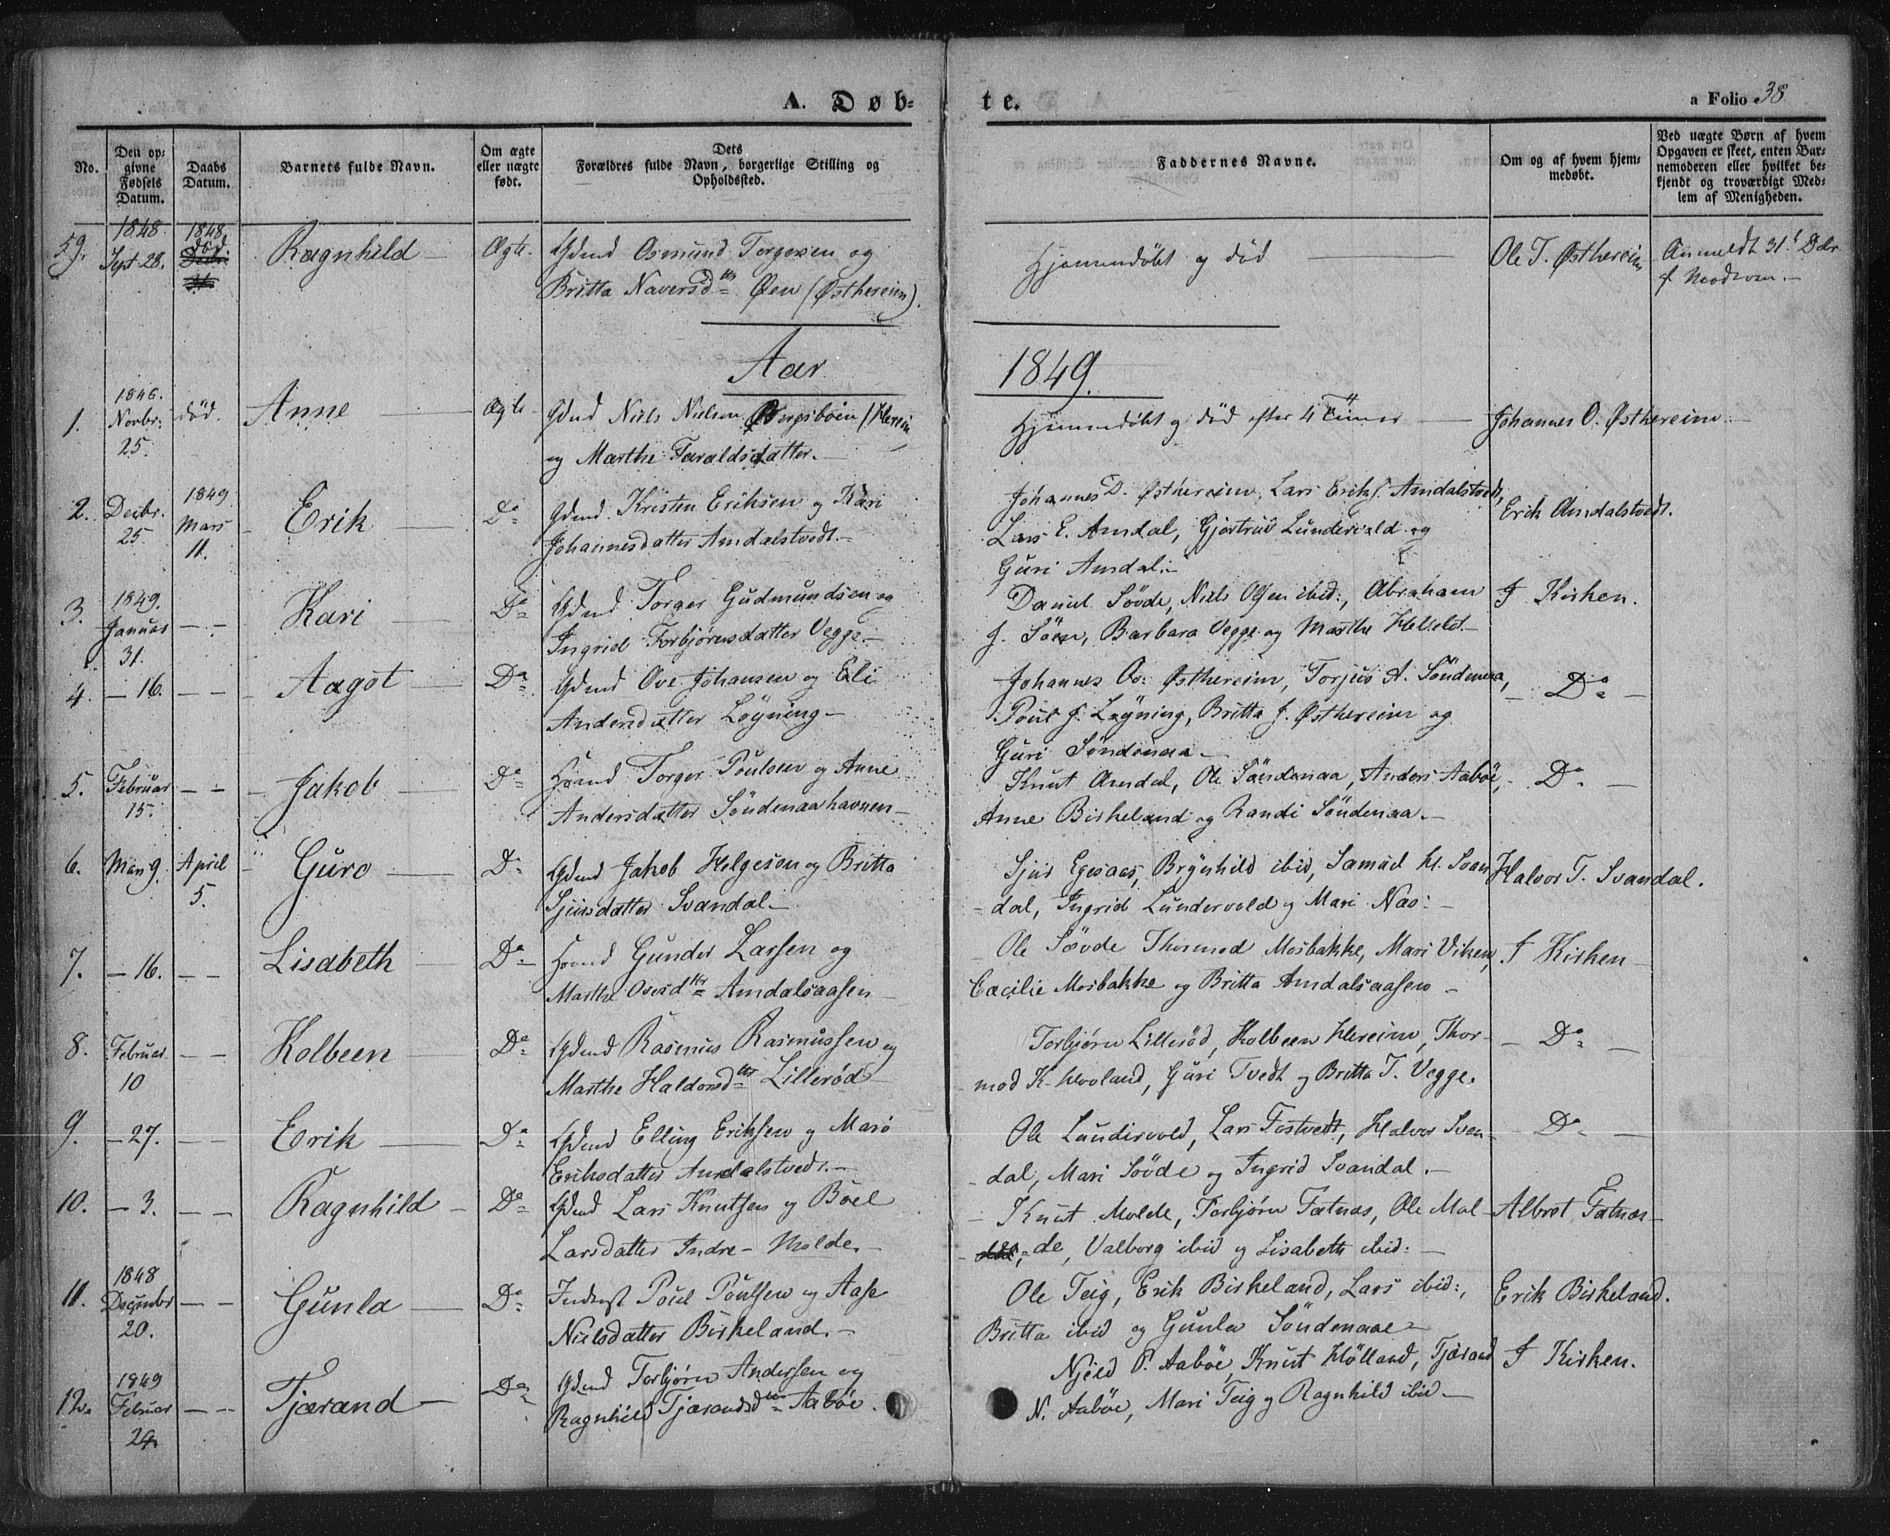 A. Døb-
te.
a Folio 38
No.
Den op-
givne
Fødsels
Datum.
Daabs
Datum.
Barnets fulde Navn.
Om ægte
eller uægte
født.
Dets
Forældres fulde Navn, borgerlige Stilling og
Opholdssted.
Faddernes Navne.
Om og af hvem hjem-
medøbt.
Ved uægte Børn af hvem
Opgaven er skeet, enten Bar-
nemoderen eller hvilket be-
kjendt og troværdigt Med-
lem af Menigheden.
59. 1848 Sept 28. 1848 død Ragnhild — Ægte Gdmd Osmund Torgersen og
Britta Naversdtr Øen (Østhereim).
Hjemmedøbt og død — Ole T. Østhereim Anmeldt 31t Dcbr
f Moderen.
Aar 1849.
1. Novbr. 25. død. Anne — Ægte Gdmd Niels Nielsen (Hereim
og Marthe Taraldsdatter.
Hjemmedøbt og død efter 4 Timer — Johannes O. Østhereim.
2. Decbr. 25 1849 Mars 11. Erik — Do Gdmd Kristen Eriksen og Kari
Johannesdatter Amdalstvedt.
Johannes O. Østhereim, Lars Erikf. Amdalstvedt,
Lars E. Amdal, Gjertrud Lundevold og
Guri Amdal.
Erik Amdalstvedt.
3. 1849. Januar 31. — Kari — Do Gdmd Torger Gudmundsen og
Ingrid Torbjørnsdatter Vegge.
Daniel Søvde, Niels Olsen ibid:, Abraham
J. Søen, Barbara Vegge og Marthe
I Kirken.
4. — 16. — Aagot — Do Gdmd Ove Johansen og Eli
Andersdatter Løyning
Johannes Ov. Østhereim, Torjus A. Söndenaa,
Poul J. Løyning, Britta J. Østhereim og
Guri Söndenaa
— Do —
5. Februar 15. — Jakob — Do Hsmd Torger Poulsen og Anne
Andersdatter Söndenaahavnen
Knut Amdal, Ole Söndenaa, Anders Aaböe,
Anne Birkeland og Randi Söndenaa.
Do —
6. Mars 9. April 5. Guro — Do Gdmd Jakob Helgesen og Britta
Sjursdatter Svandal
Sjur Egesaas, Brynhild ibid, Samuel H. Svan
-dal, Ingrid Lundevold og Mari Næs:
Halvor T. Svandal.
7. — 16. — Lisabeth — Do Hsmd Gunder Larsen og
Marthe Osesdtr Amdalsaasen
Ole Søvde Thormod Mosbakke, Mari Viken,
Cæcilie Mosbakke og Britta Amdalsaasen
I Kirken
8. Februar 10 — Kolbeen Do Gdmd Rasmus Rasmussen og
Marthe Haldorsdtr Lillerød
Torbjørn Lillerød, Kolbeen Hereim, Thor-
mod K. Hovland, Guri Tvedt og Britta T. Vegge.
— Do —
9. — 27. — Erik — Do Gdmd Elling Eriksen og Mari
Eriksdatter Amdalstvedt.
Ole Lundevold, Lars Fostvedt, Halvor Svan-
-dal, Mari Søvde og Ingrid Svandal.
Do —
10. — 3. — Ragnhild — Do Gdmd Lars Knutsen og Böel
Larsdatter Indre-Molde.
Knut Molde, Torbjørn Fatnæs, Ole Mol-
de, Valborg ibid og Lisabeth ibid:
Albret Fatnæs
11. 1848 December 20. — Gunla — Do Inderst Poul Poulsen og Aase
Nielsdatter Birkeland.
Ole Teig, Erik Birkeland, Lars ibid:,
Britta ibid og Gunla Söndenaae
Erik Birkeland.
12. 1849 Februar 24. — Tjærand — Do Gdmd Torbjørn Andersen og
Ragnhild Tjærandsdtr Aaböe.
Njeld P. Aaböe, Knut Hölland, Tjærand
N. Aaböe, Mari Teig og Ragnhild ibid
I Kirken.